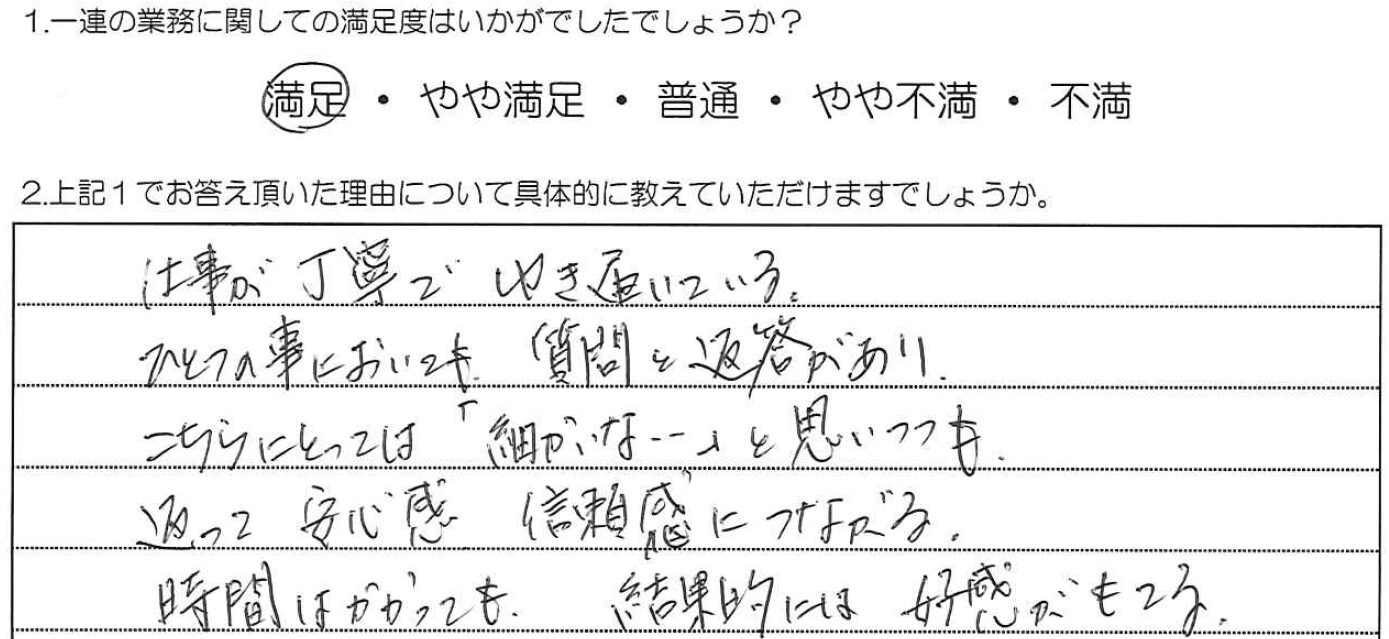 1.一連の業務に関しての満足度はいかがでしたでしょうか？
満足 ・ やや満足 ・ 普通 ・ やや不満 ・ 不満
2.上記1でお答え頂いた理由について具体的に教えていただけますでしょうか。
仕事が丁寧でゆき届いている。
ひとつの事においても、質問と返答があり、
こちらにとっては「細かいな…」と思いつつも、
返って 安心感 信頼感につながる。
時間はかかっても、結果的には 好感がもてる。